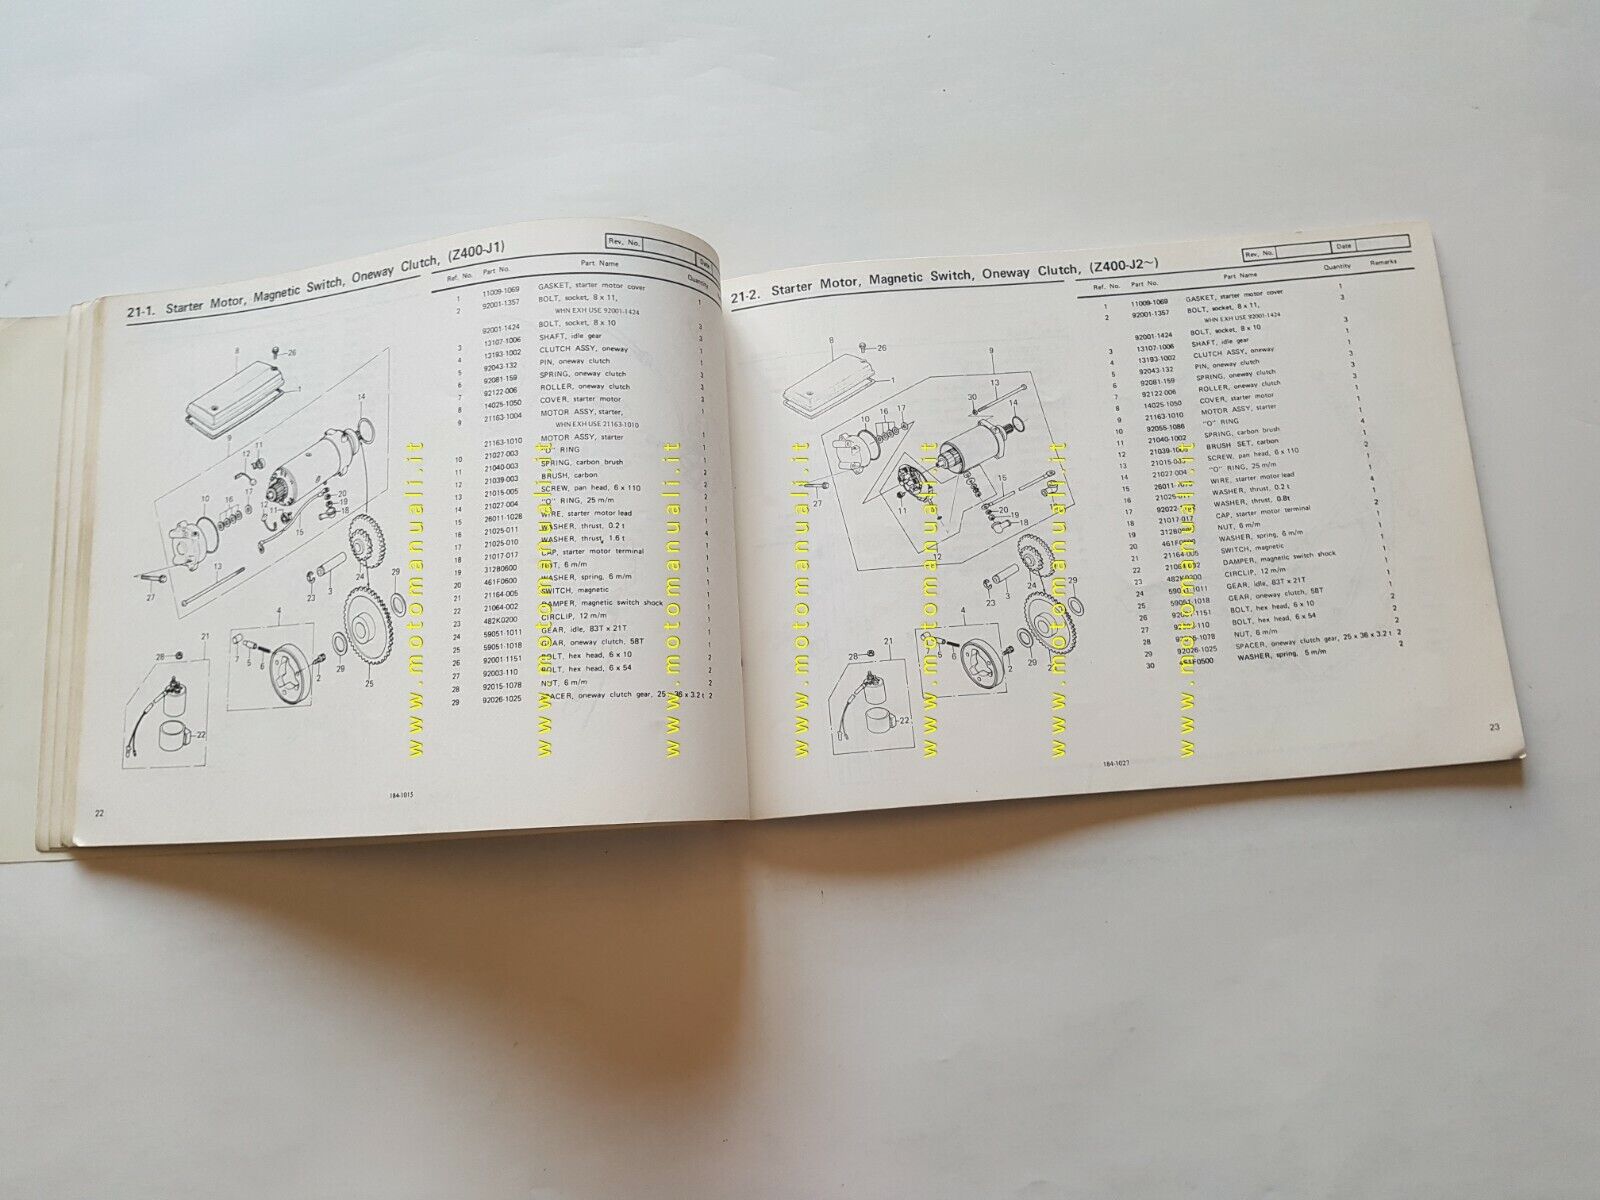 21-1. Starter Motor, Magnetic Switch, Oneway Clutch, (Z400-J1)
Rev. No. Date
Ref. No. Part No. Part Name Quantity
1 11009-1069 GASKET, starter motor cover 1
2 92001-1357 BOLT, socket, 8 x 11, 3
WHN EXH USE 92001-1424
92001-1424 BOLT, socket, 8 x 10 3
3 13107-1006 SHAFT, idle gear 1
4 13193-1002 CLUTCH ASSY, oneway 1
5 92043-132 PIN, oneway clutch 3
6 92081-159 SPRING, oneway clutch 3
7 92122-006 ROLLER, oneway clutch 3
8 14025-1050 COVER, starter motor 1
9 21163-1004 MOTOR ASSY, starter, 1
WHN EXH USE 21163-1010
21163-1010 MOTOR ASSY, starter 1
10 21027-003 "O" RING 1
11 21040-003 SPRING, carbon brush
12 21039-003 BRUSH, carbon
13 21015-005 SCREW, pan head, 6 x 110 2
14 21027-004 "O" RING, 25 m/m 1
15 26011-1028 WIRE, starter motor lead 1
16 21025-011 WASHER, thrust, 0.2 t 4
17 21025-010 WASHER, thrust, 1.6 t 1
18 21017-017 CAP, starter motor terminal 1
19 312B0600 NUT, 6 m/m
20 461F0600 WASHER, spring, 6 m/m
21 21164-005 SWITCH, magnetic 1
22 21064-002 DAMPER, magnetic switch shock 1
23 482K0200 CIRCLIP, 12 m/m 1
24 59051-1011 GEAR, idle, 83T x 21T 1
25 59051-1018 GEAR, oneway clutch, 58T 1
26 92001-1151 BOLT, hex head, 6 x 10 2
27 92003-110 BOLT, hex head, 6 x 54 2
28 92015-1078 NUT, 6 m/m 2
29 92026-1025 SPACER, oneway clutch gear, 25 x 36 x 3.2 t 2
184-1015
22
21-2. Starter Motor, Magnetic Switch, Oneway Clutch, (Z400-J2~)
Rev. No. Date
Ref. No. Part No. Part Name Quantity Remarks
1 11009-1069 GASKET, starter motor cover 1
2 92001-1357 BOLT, socket, 8 x 11, 3
WHN EXH USE 92001-1424
92001-1424 BOLT, socket, 8 x 10 3
3 13107-1006 SHAFT, idle gear 1
4 13193-1002 CLUTCH ASSY, oneway 1
5 92043-132 PIN, oneway clutch 3
6 92081-159 SPRING, oneway clutch 3
7 92122-006 ROLLER, oneway clutch 3
8 14025-1050 COVER, starter motor 1
9 21163-1010 MOTOR ASSY, starter 1
10 92055-1086 "O" RING
11 21040-1002 SPRING, carbon brush 4
12 21039-1006 BRUSH SET, carbon
13 21015-005 SCREW, pan head, 6 x 110 2
14 21027-004 "O" RING, 25 m/m
15 26011- WIRE, starter motor lead 1
16 21025-011 WASHER, thrust, 0.2 t 4
17 92022- WASHER, thrust, 0.8t 1
18 21017-017 CAP, starter motor terminal 1
19 312B0600 NUT, 6 m/m
20 461F0600 WASHER, spring, 6 m/m
21 21164-005 SWITCH, magnetic 1
22 21064-002 DAMPER, magnetic switch shock 1
23 482K0200 CIRCLIP, 12 m/m 1
24 59051-1011 GEAR, idle, 83T x 21T 1
25 59051-1018 GEAR, oneway clutch, 58T 1
26 92001-1151 BOLT, hex head, 6 x 10 2
27 92003-110 BOLT, hex head, 6 x 54 2
28 92015-1078 NUT, 6 m/m 2
29 92026-1025 SPACER, oneway clutch gear, 25 x 36 x 3.2 t 2
30 461F0500 WASHER, spring, 5 m/m 2
184-1027
23
www.motomanuali.it
www.motomanuali.it
www.motomanuali.it
www.motomanuali.it
www.motomanuali.it
www.motomanuali.it
www.motomanuali.it